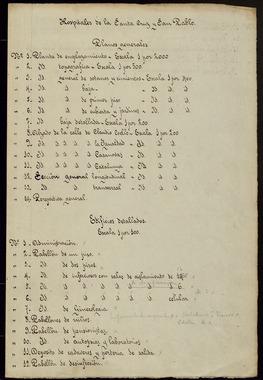 Hospitales de la Santa Cruz y San Pablo.
Planos generales
Nº 1. Planta de emplazamiento - Escala 1 por 2000
" 2. Id topográfica - Escala 1 por 500
" 3. Id general de sótanos y cimientos - Escala 1 por 200
" 4. Id " baja - Id " "
" 5. Id " de primer piso - Id " "
" 6. Id " de cubierta y jardines - Id " "
" 7. Id baja detallada - Escala 1 por 200
" 8. Alzado de la calle de - Escala 1 por 200
" 9. Id " " " la Igualdad - Id " "
" 10. Id " " " - Id " "
" 11. Id " " " - Id " "
" 12. Sección general longitudinal - Id " "
" 13. Id " transversal - Id " "
" 14. Perspectiva general.
Edificios detallados.
Escala 1 por 100.
Nº 1. Administración.
" 2. Pabellón de un piso.
" 3. Id de dos pisos
" 4. Id de infecciosos con salas de aislamiento de
" 5. Id " " " " "
" 6. Id " " " celular.
" 7. Id de Ginecología
" 8. Pabellones de niños
" 9. Pabellón de pensionistas.
" 10. Id de autopsias y laboratorios
" 11. Depósito de cadáveres y portería de salida
" 12. Pabellón de desinfección.